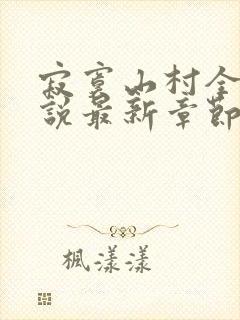 寂寞山村全
說最新章節
楓漾漾